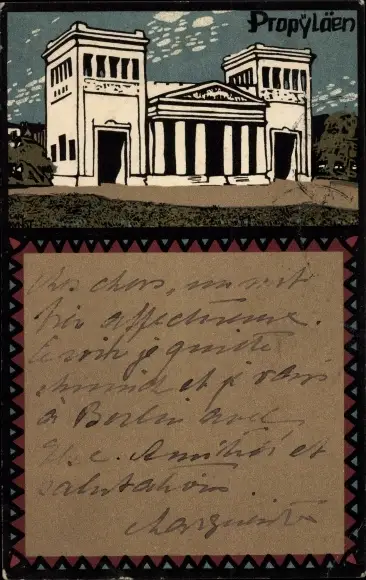 Propyläen
Mes chers, un mot
très affectueux.
Ce soir je quitte
Munich et je vais
à Berlin avec
Amitiés et
salutations
Marguerite